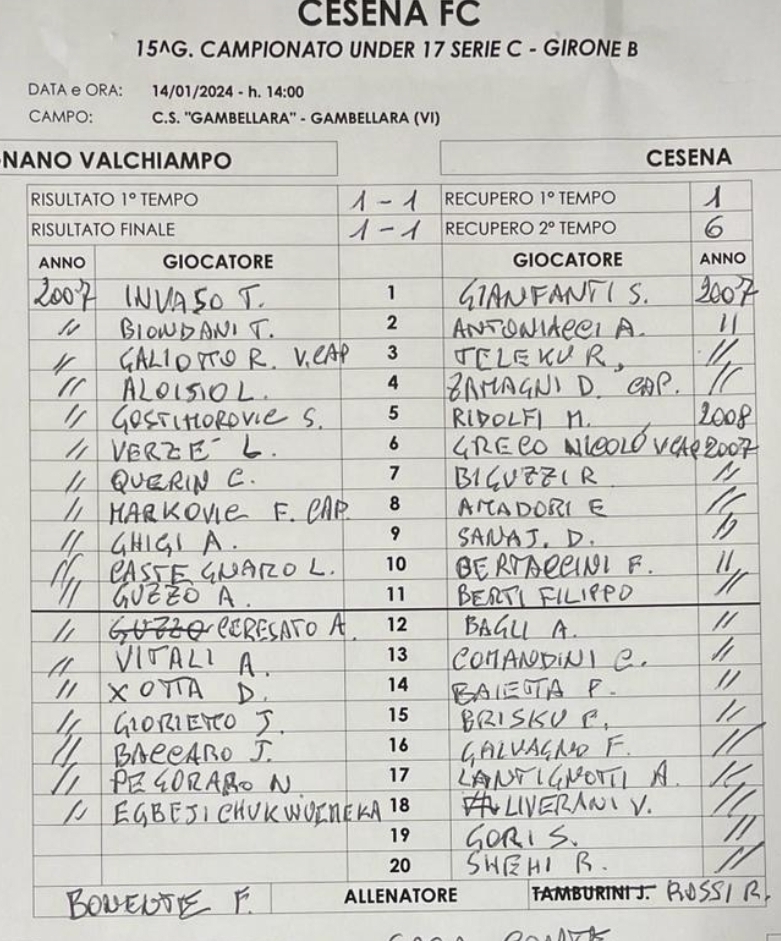 CESENA FC
15^G. CAMPIONATO UNDER 17 SERIE C - GIRONE B
DATA e ORA: 14/01/2024 - h. 14:00
CAMPO: C.S. "GAMBELLARA" - GAMBELLARA (VI)
GNANO VALCHIAMPO CESENA
RISULTATO 1° TEMPO 1 - 1 RECUPERO 1° TEMPO 1
RISULTATO FINALE 1 - 1 RECUPERO 2° TEMPO 6
ANNO GIOCATORE GIOCATORE ANNO
2007 INVASO T. 1 GIANFANTI S. 2007
// BIONDANI T. 2 ANTONIACCI A. //
// GALIOTTO R. V.CAP 3 TELEKU R. //
// ALOISIO L. 4 ZAMAGNI D. CAP. //
// GOSTIMOROVIC S. 5 RIDOLFI M. 2008
// VERZE' L. 6 GRECO NICOLÓ VCAP 2007
// QUERIN C. 7 BIGUZZI R //
// MARKOVIC F. CAP 8 AMADORI E //
// GHIGI A. 9 SANAJ. D. //
// CASTEGNARO L. 10 BERTACCINI F. //
// GUZZO A. 11 BERTI FILIPPO //
// GUZZO CERESATO A 12 BAGLI A. //
// VITALI A. 13 COMANDINI C. //
// XOTTA D. 14 BAIETTA F. //
// GIORIETTO J. 15 BRISKU E. //
// BACCARO J. 16 GALVAGNO F. //
// PEGORARO N. 17 LANTIGNOTTI A. //
// EGBEJI CHUKWUEMEKA 18 LIVERANI V. //
19 GORI S. //
20 SHEHI R. //
BONENTE F. ALLENATORE TAMBURINI J. ROSSI R.